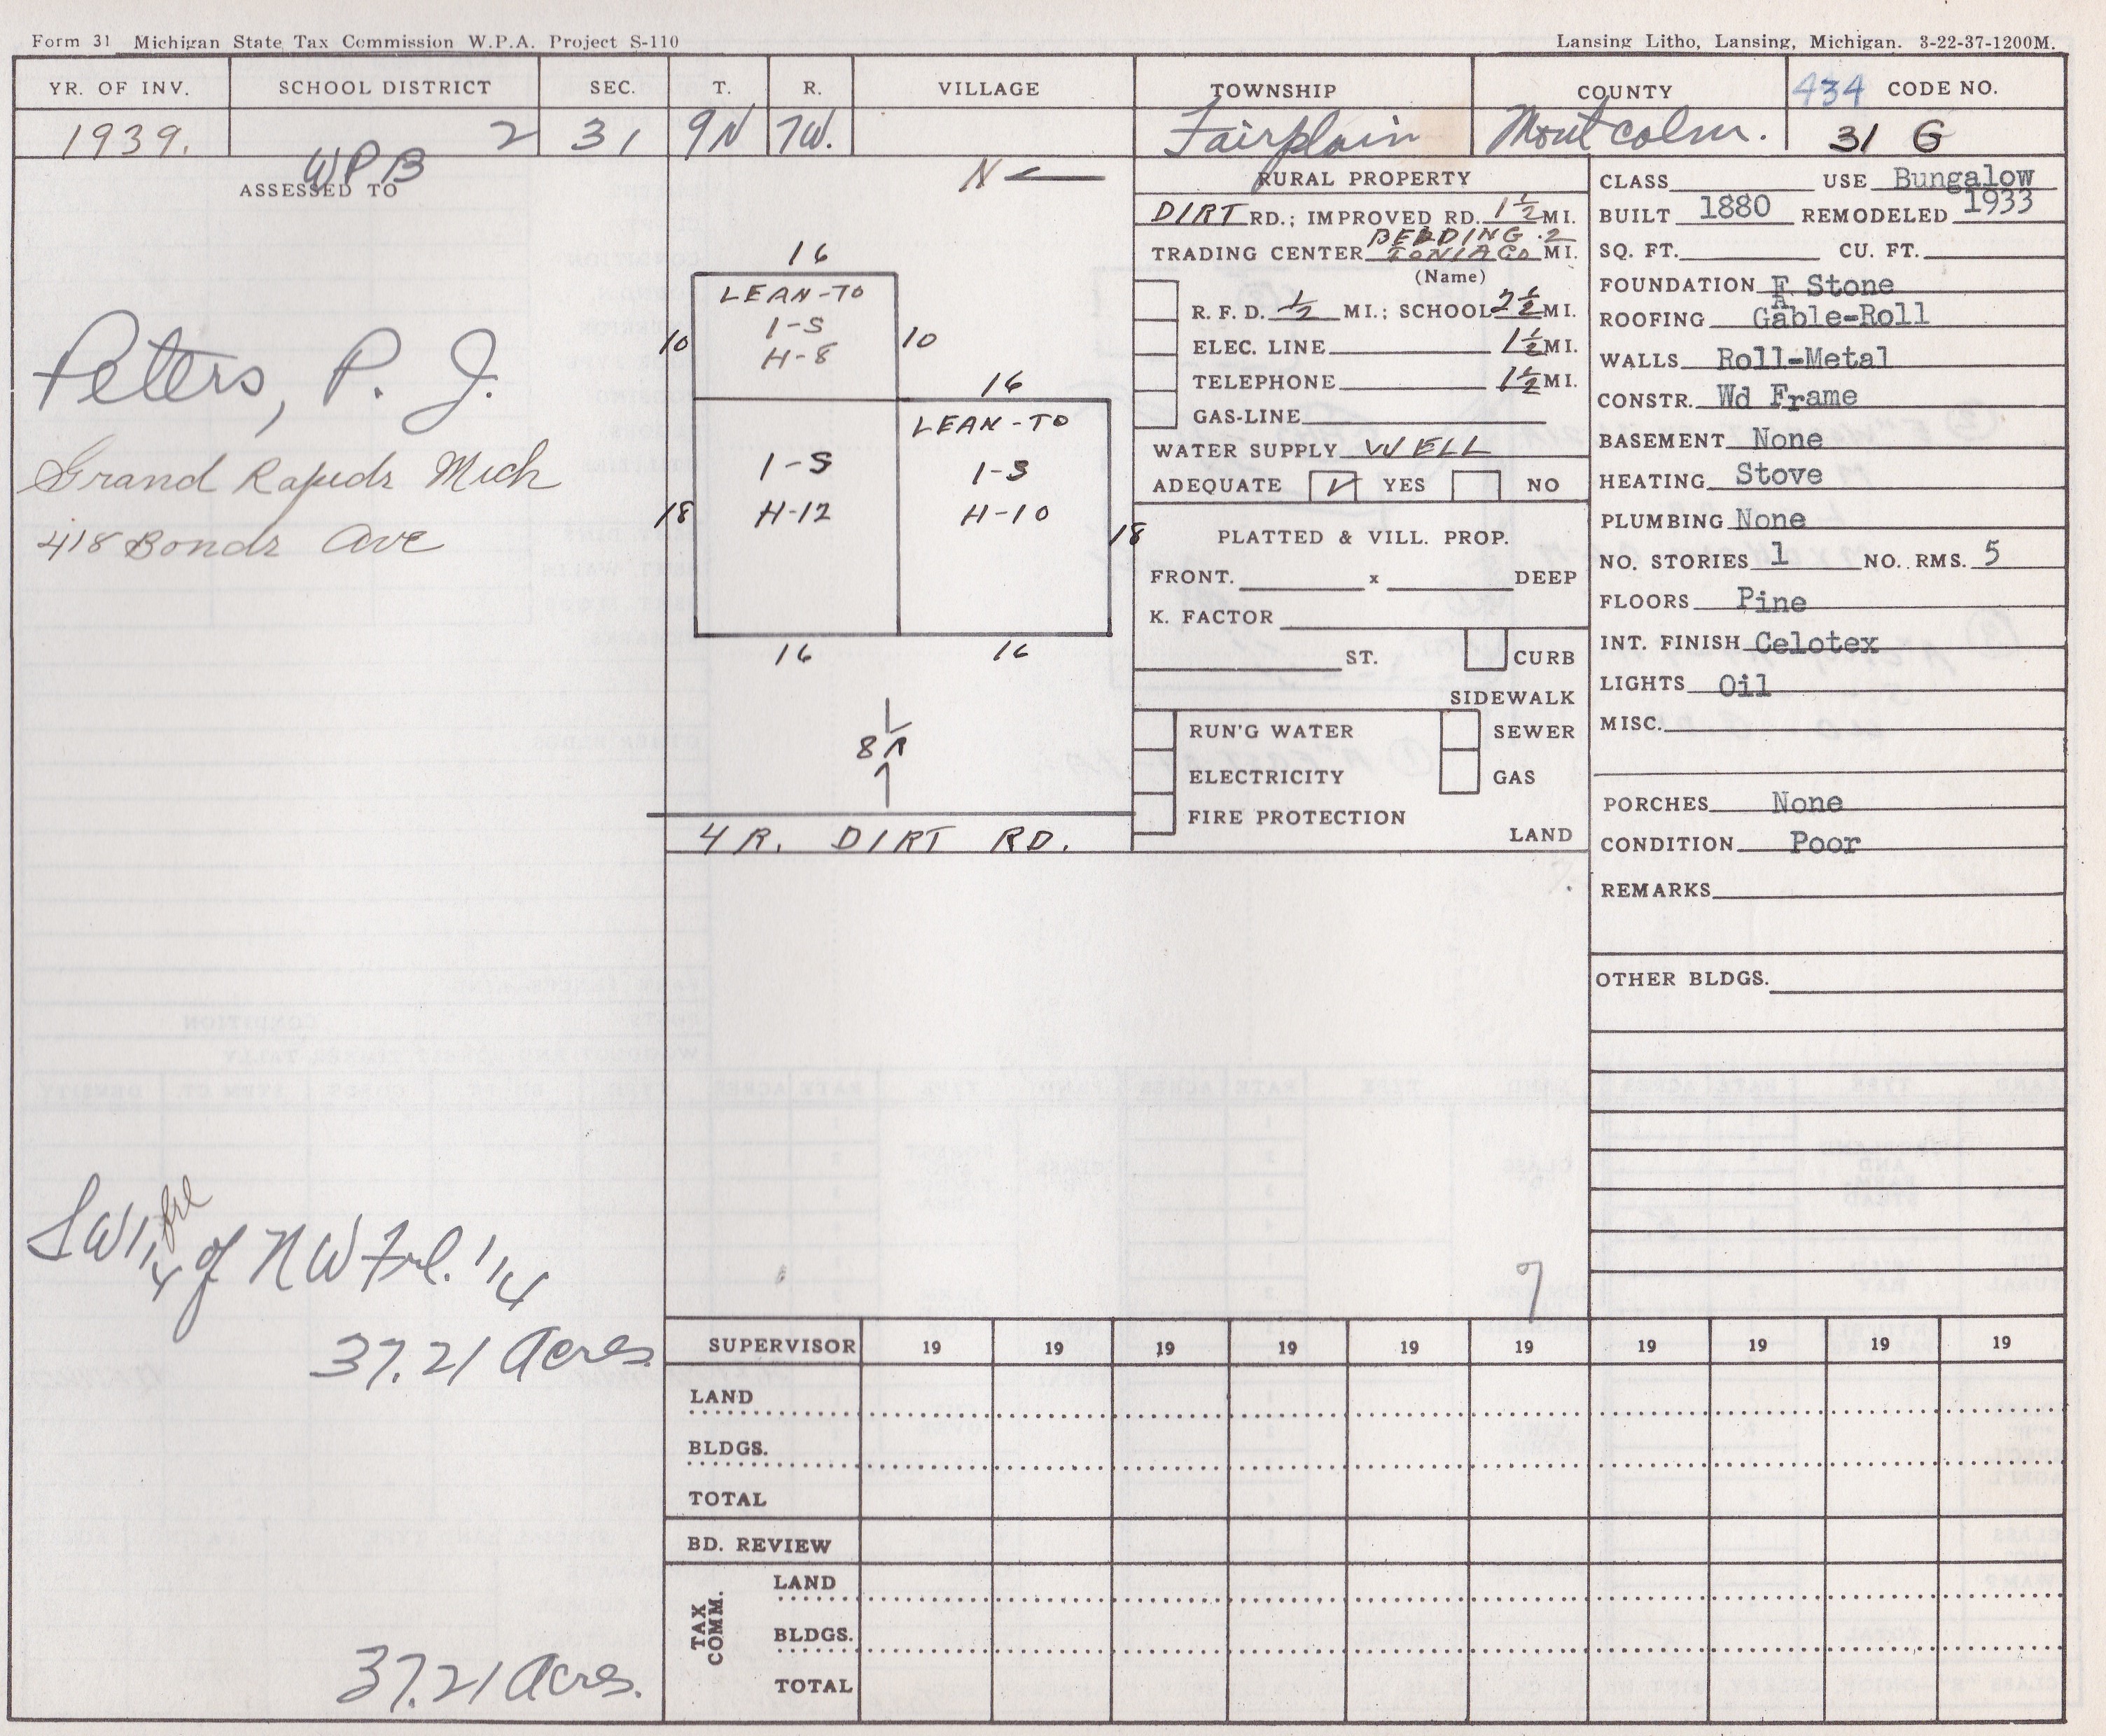 Form 31 Michigan State Tax Commission W.P.A. Project S-110
Lansing Litho, Lansing, Michigan. 3-22-37-1200M.
YR. OF INV. SCHOOL DISTRICT SEC. T. R. VILLAGE TOWNSHIP COUNTY 434 CODE NO.
1939. 2 31 9N 7W. Fairplain Montcalm. 31 G
WPB
ASSESSED TO
Peters, P. J.
Grand Rapids Mich
418 Bonds Ave
SW 1/4 frl of NW Frl. 1/4
37.21 Acres
37.21 Acres.
N
16
LEAN-TO
1-S
H-8
10 10
16
LEAN-TO
1-S 1-S
H-12 H-10
18 18
16 16
8 R
4 R. DIRT RD.
RURAL PROPERTY
DIRT RD.; IMPROVED RD. 1 1/2 MI.
BELDING 2
TRADING CENTER IONIA CO MI.
(Name)
R. F. D. 1/2 MI.; SCHOOL 2 1/2 MI.
ELEC. LINE 1 1/2 MI.
TELEPHONE 1 1/2 MI.
GAS-LINE
WATER SUPPLY WELL
ADEQUATE ✓ YES NO
PLATTED & VILL. PROP.
FRONT. x DEEP
K. FACTOR
ST. CURB
SIDEWALK
RUN'G WATER SEWER
ELECTRICITY GAS
FIRE PROTECTION
LAND
CLASS USE Bungalow
BUILT 1880 REMODELED 1933
SQ. FT. CU. FT.
FOUNDATION F Stone
ROOFING Gable-Roll
WALLS Roll-Metal
CONSTR. Wd Frame
BASEMENT None
HEATING Stove
PLUMBING None
NO. STORIES 1 NO. RMS. 5
FLOORS Pine
INT. FINISH Celotex
LIGHTS Oil
MISC.
PORCHES None
CONDITION Poor
REMARKS
OTHER BLDGS.
7
SUPERVISOR 19 19 19 19 19 19 19 19 19 19
LAND
BLDGS.
TOTAL
BD. REVIEW
TAX COMM.
LAND
BLDGS.
TOTAL